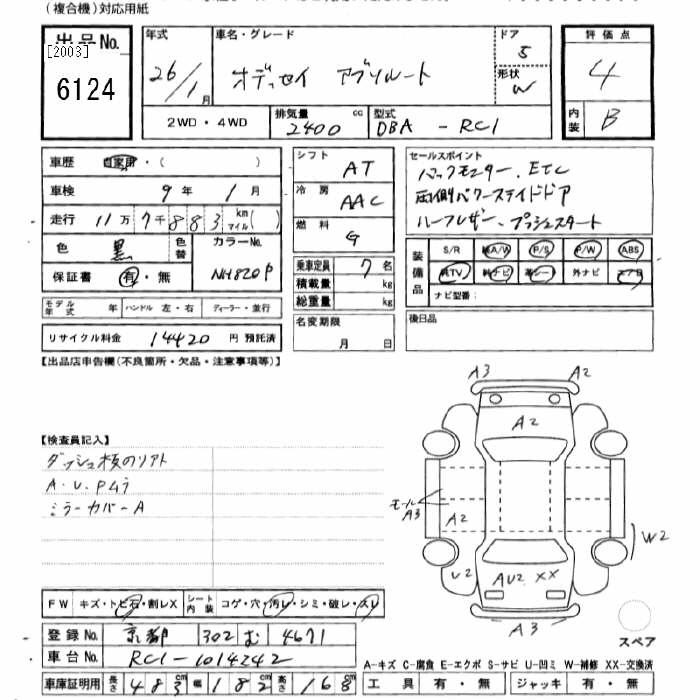 (複合機)対応用紙
出品No.
[2003]
6124
年式
26/1月
車名・グレード
オデッセイ アブソルート
ドア
5
形状
W
評価点
4
内装
B
2WD・4WD
排気量
2400 cc
型式
DBA - RC1
車歴
自家用・( )
車検
9年 1月
走行
11万 7千 883 km マイル( )
色
黒
色替
カラーNo.
NH820P
保証書
有・無
モデル年式
年
ハンドル 左・右
ディーラー・並行
リサイクル料金 14420 円 預託済
シフト
AT
冷房
AAC
燃料
G
乗車定員 7 名
積載量 kg
総重量 kg
名変期限
月 日
セールスポイント
バックモニター、ETC
両側パワースライドドア
ハーフレザー、プッシュスタート
装備品
S/R
純A/W
P/S
P/W
ABS
純TV
純ナビ
革シート
外ナビ
エアB
ナビ型番:
後日品
【出品店申告欄(不良箇所・欠品・注意事項等)】
【検査員記入】
ダッシュ板のリアト
A・U・Pムラ
ミラーカバーA
A3
A2
A2
モールA3
A2
W2
U2
AU2 XX
A3
スペア
FW
キズ・トビ石・割レX
シート内装
コゲ・穴・汚レ・シミ・破レ・スレ
登録No. 京都 302 む 4671
車台No. RC1-1014242
車庫証明用 長さ 483cm 幅 182cm 高さ 168cm
A-キズ C-腐食 E-エクボ S-サビ U-凹ミ W-補修 XX-交換済
工具 有・無 ジャッキ 有・無